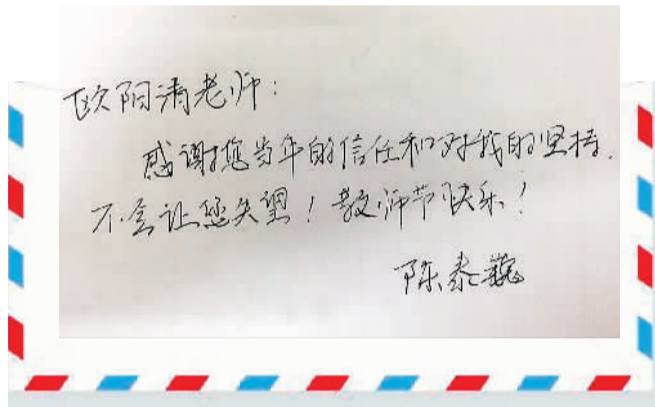 欧阳清老师：
感谢您当年的信任和对我的坚持.
不会让您失望！教师节快乐！
陈泰巍